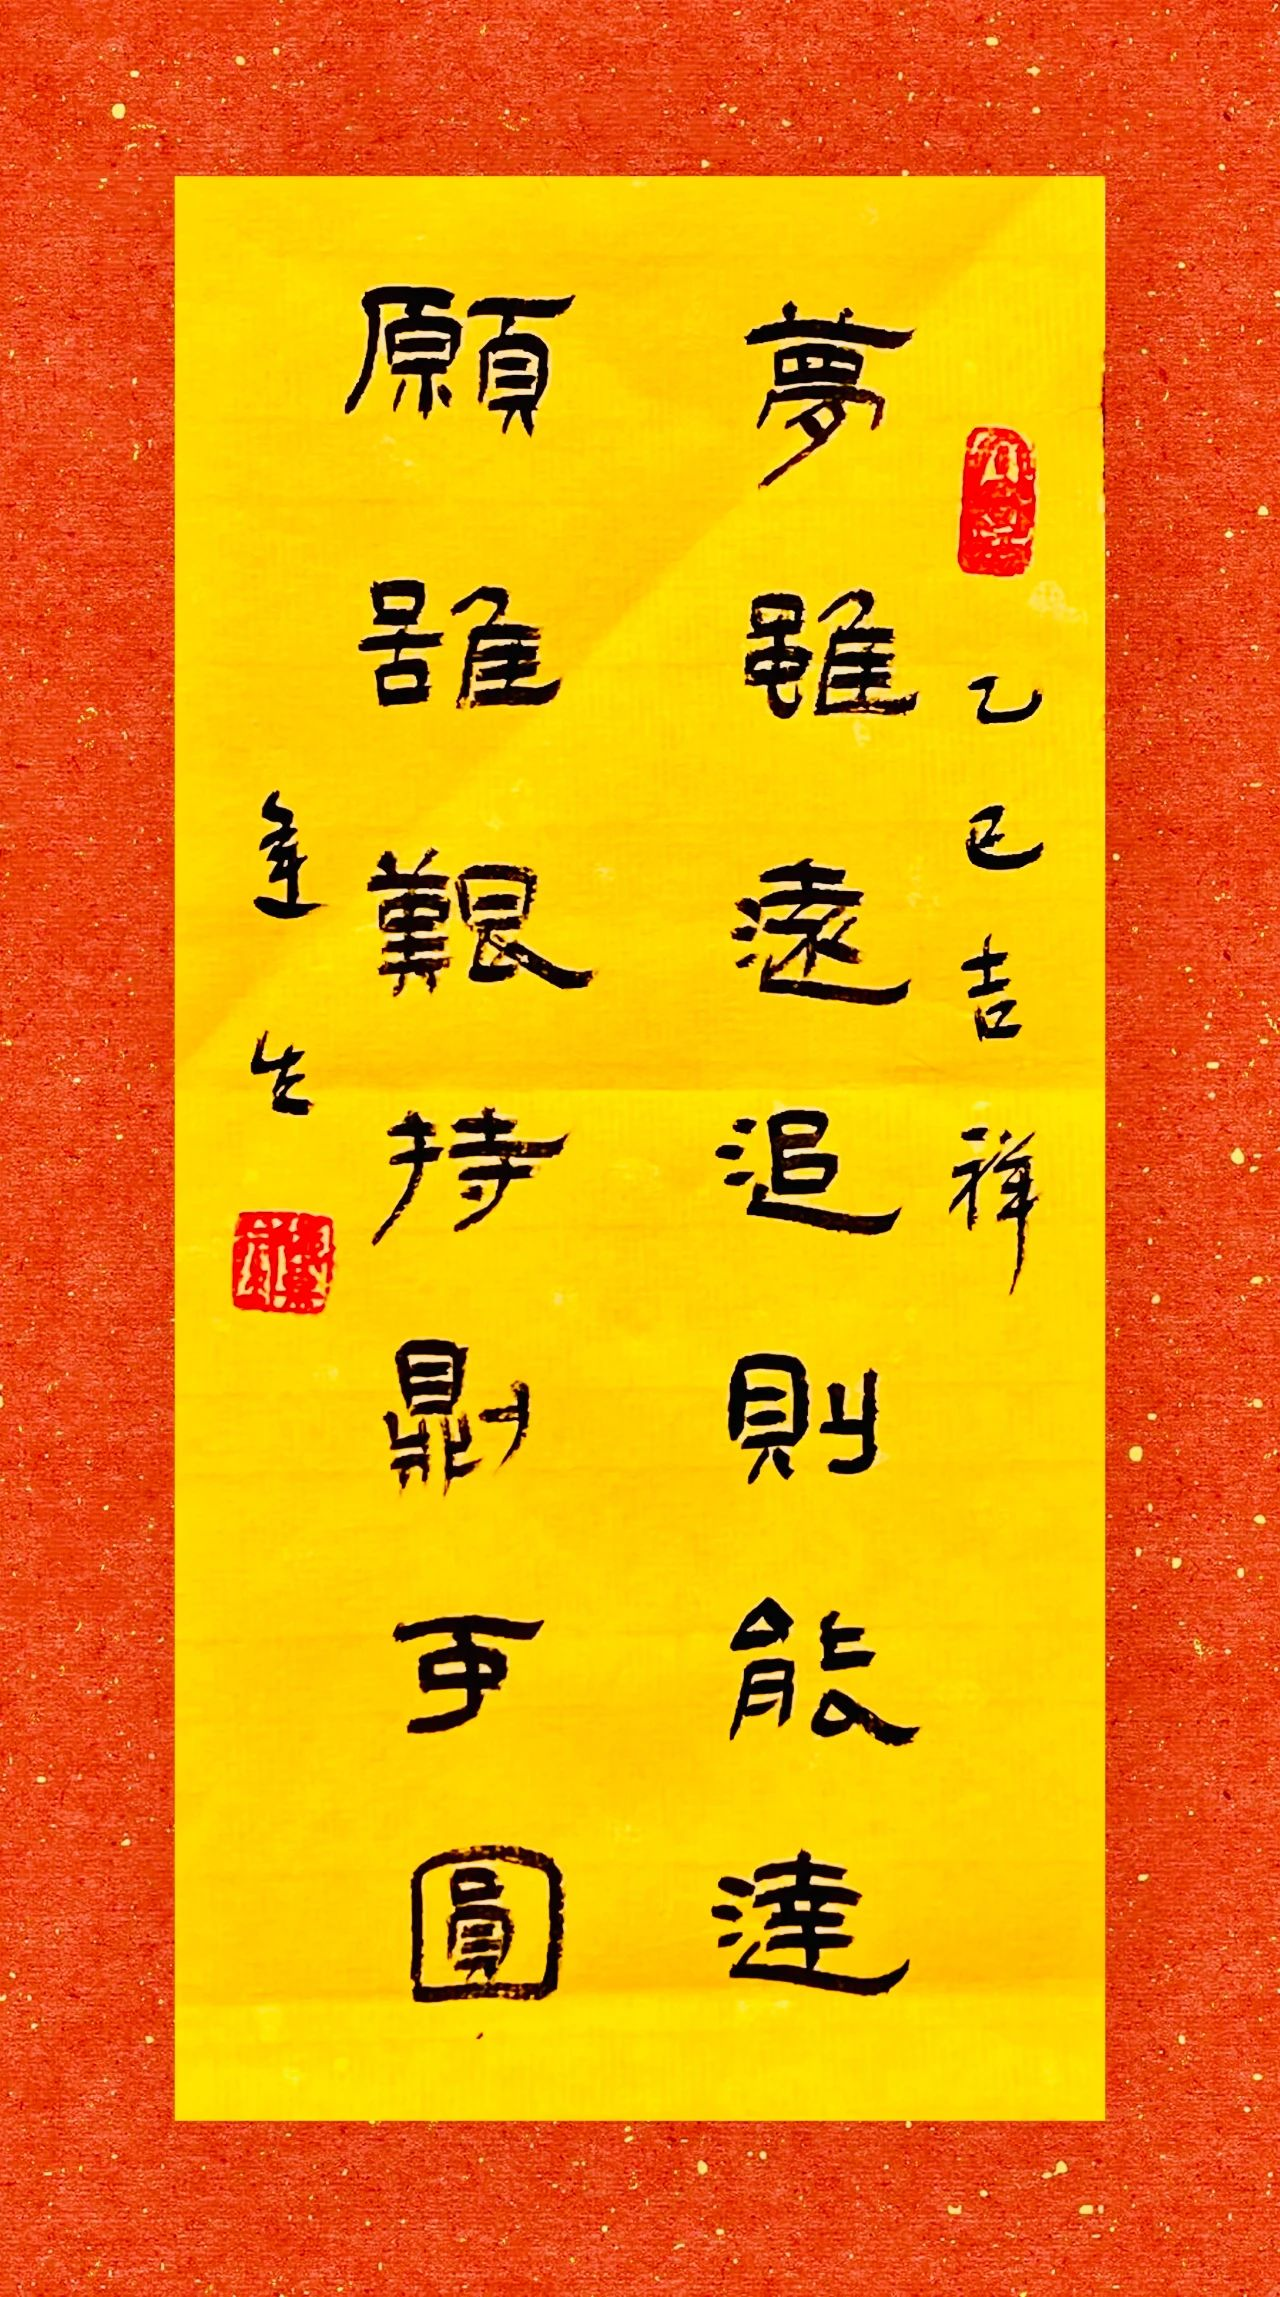 乙巳吉祥
夢雖遠追則能達
願雖艱持則可圓
逢生